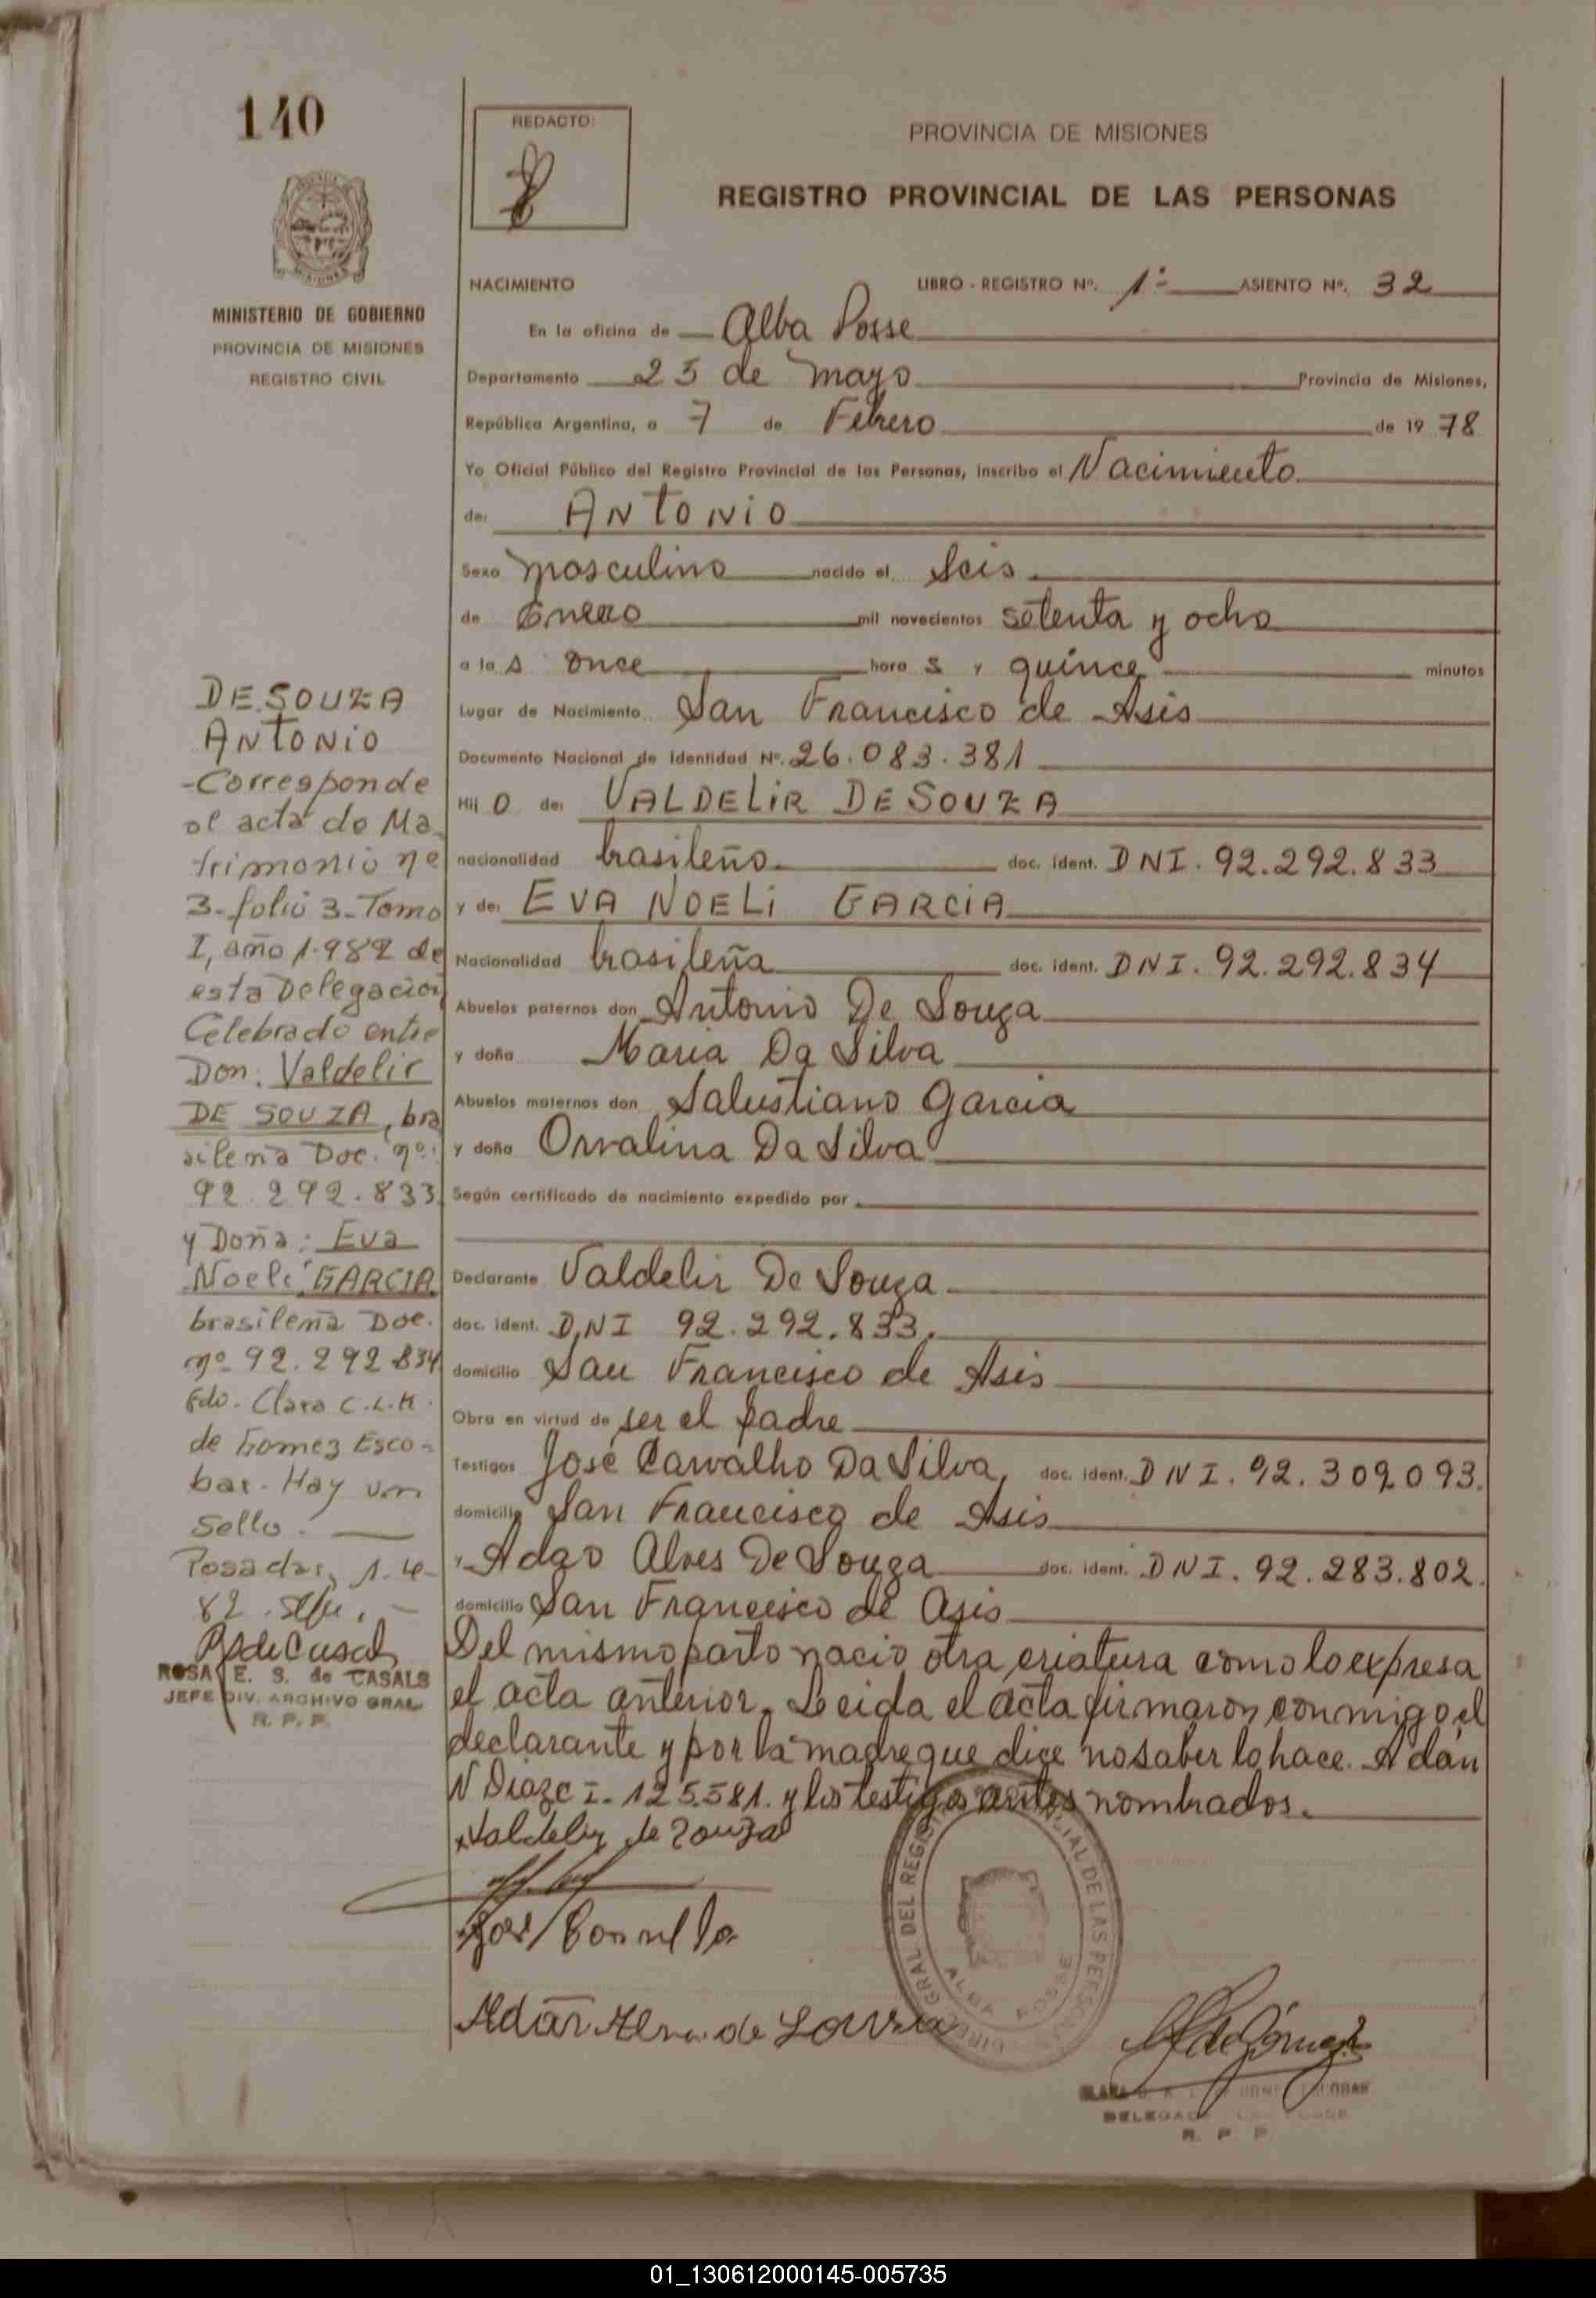 140
REDACTO:
PROVINCIA DE MISIONES
REGISTRO PROVINCIAL DE LAS PERSONAS
MINISTERIO DE GOBIERNO
PROVINCIA DE MISIONES
REGISTRO CIVIL
NACIMIENTO LIBRO - REGISTRO Nº. 1º ASIENTO Nº. 32
En la oficina de Alba Posse
Departamento 25 de Mayo Provincia de Misiones,
República Argentina, a 7 de Febrero de 1978
Yo Oficial Público del Registro Provincial de las Personas, inscribo el Nacimiento
de: ANTONIO
Sexo masculino nacido el Seis
de Enero mil novecientos setenta y ocho
a las once horas y quince minutos
Lugar de Nacimiento San Francisco de Asis
Documento Nacional de Identidad Nº. 26.083.381
Hijo de: VALDELIR DE SOUZA
nacionalidad brasileño doc. ident. DNI. 92.292.833
y de: EVA NOELI GARCIA
Nacionalidad brasileña doc. ident. DNI. 92.292.834
Abuelos paternos don Antonio De Souza
y doña Maria Da Silva
Abuelos maternos don Salustiano Garcia
y doña Orvalina Da Silva
Según certificado de nacimiento expedido por
Declarante Valdelir De Souza
doc. ident. DNI 92.292.833.
domicilio San Francisco de Asis
Obra en virtud de ser el padre
Testigos José Carvalho Da Silva, doc. ident. DNI. 92.309.093.
domicilio San Francisco de Asis
y Adao Alves De Souza doc. ident. DNI. 92.283.802.
domicilio San Francisco de Asis
Del mismo parto nacio otra criatura como lo expresa
el acta anterior. Leeida el acta firmaron conmigo el
declarante y por la madre que dice no saber lo hace. Adán
N Diaz C I. 125.581. y los testigos antes nombrados.
Valdelir de Souza
DE SOUZA
ANTONIO
-Corresponde
al acta de Ma
trimonio nº
3-folio 3-Tomo
I, año 1.982 de
esta Delegación
Celebrado entre
Don: Valdelir
DE SOUZA, bra
sileña Doc. nº:
92.292.833
y Doña: Eva
Noeli GARCIA
brasileña Doc.
nº 92.292.834
Fdo. Clara C.L.K.
de Gomez Esco-
bar. Hay un
Sello.
Posadas, 1-4-
82.
ROSA E. S. de CASALS
JEFE DIV. ARCHIVO GRAL.
R. P. P.
ALBA POSSE
R. P. P.
01_130612000145-005735